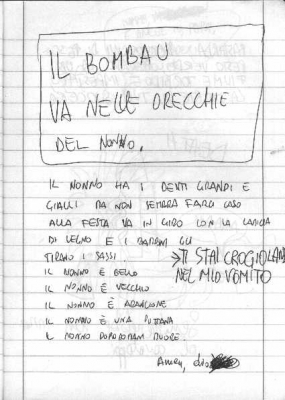 IL BOMBAU
VA NELLE ORECCHIE
DEL NONNO.
IL NONNO HA I DENTI GRANDI E
GIALLI MA NON SEMBRA FARCI CASO
ALLA FESTA VA IN GIRO CON LA
DI LEGNO E I BAMBINI GLI
TIRANO I SASSI.
→TI STAI CROGIOLANDO
NEL MIO VOMITO
IL NONNO È BELLO
IL NONNO È VECCHIO
IL NONNO È ARANCIONE
IL NONNO È UNA PUTTANA
IL NONNO DOPODOMANI MUORE.
Amen,